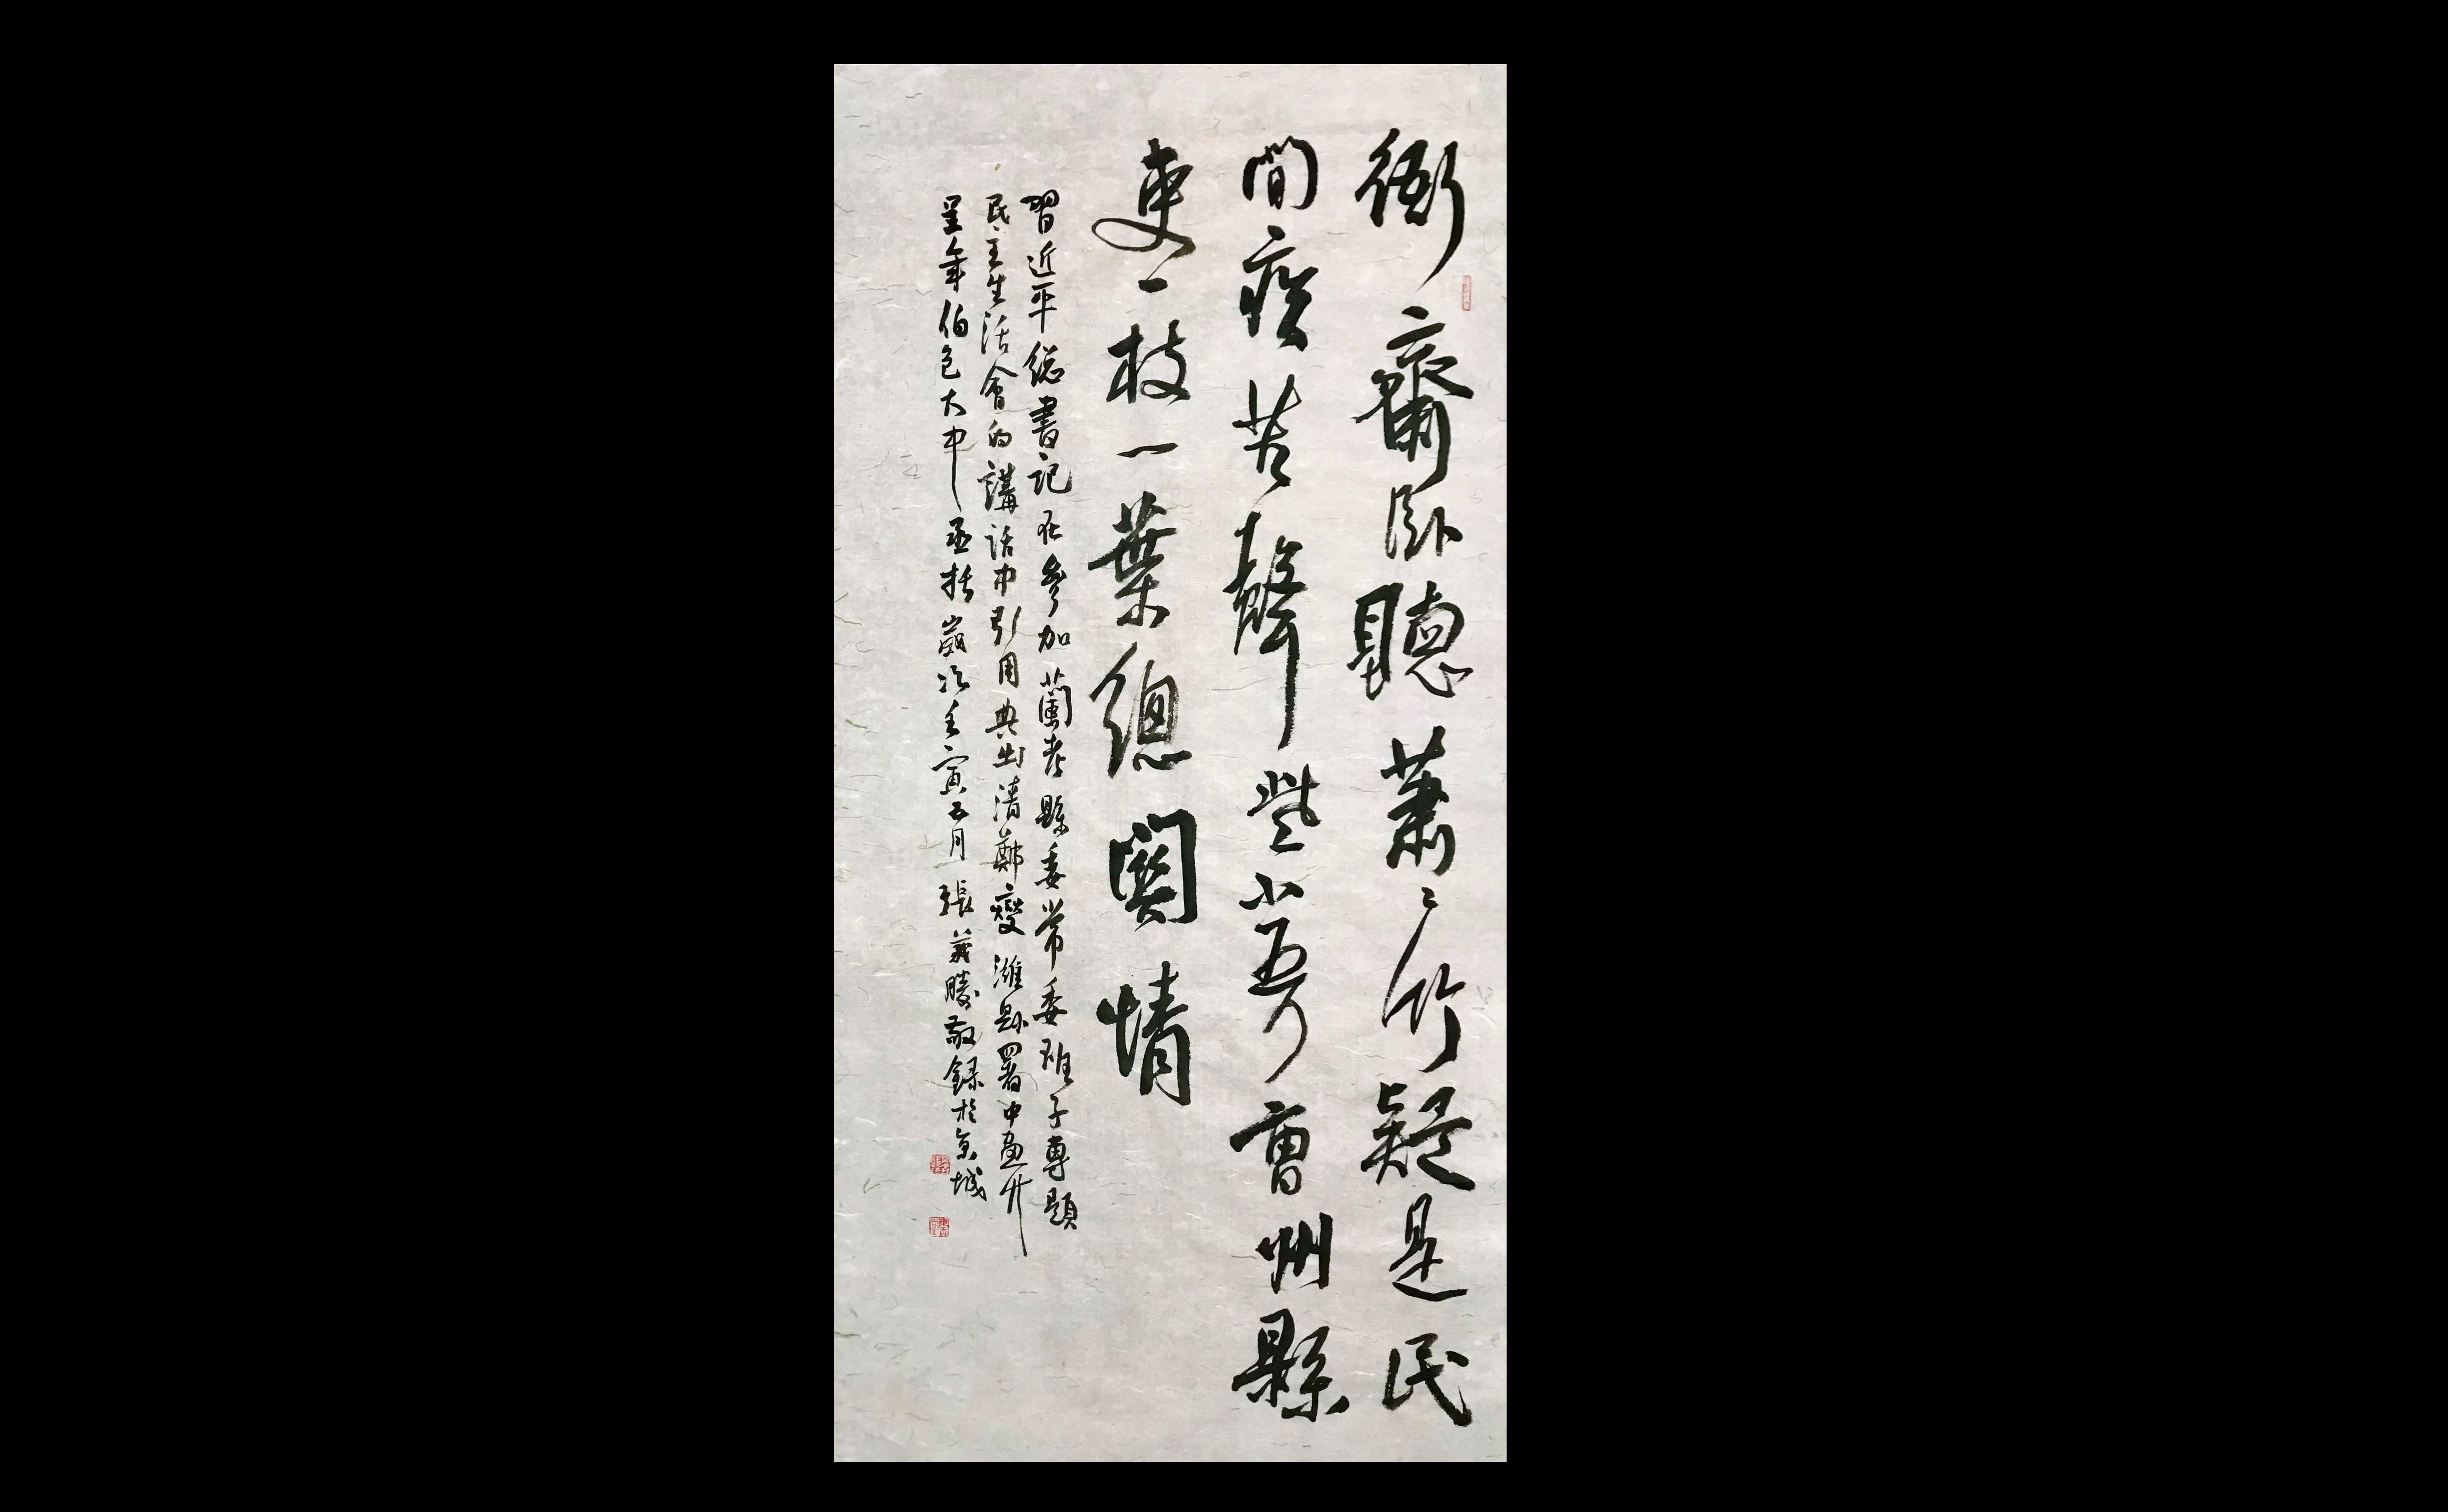 衙齋卧聽蕭々竹疑是民
間疾苦聲些小吾曹州縣
吏一枝一葉總關情
習近平總書記在參加蘭考縣委常委班子專題
民主生活會的講話中引用典出清鄭燮濰縣署中畫竹
呈年伯包大中丞括歲次壬寅五月張義勝敬錄於京城